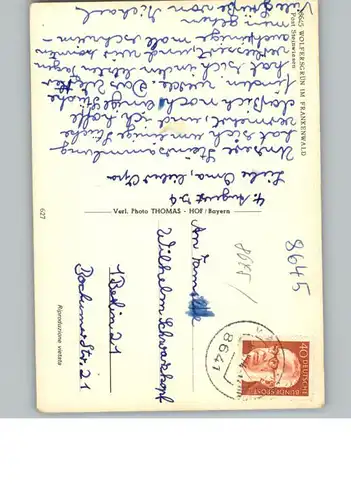 8645 WOLFERSGRÜN IM FRANKENWALD
Post Steinwiesen
4. August 74
Liebe Oma, lieber Opa
Unsere Steinsammlung
hat sich um einige Stücke
vermehrt, und ich hoffe
daß ich noch
finden werde. Das
hat sich in den letzten Tagen
verbessert, und wir konnten
mal schwimmen
gehen
Viele Grüße von Michael
Verl. Photo THOMAS - HOF/Bayern
627
An Familie
Wilhelm Schwarzkopf
1 Berlin 21
Bochumer Str. 21
Riproduzione vietata
8645
8645
8641
40
DEUTSCHE
BUNDESPOST